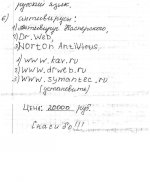 русский язык.
6) антивирусы:
1) антивирус Касперского,
2) Dr. Web,
3) Norton AntiVirus.
1) www.kav.ru
2) www.drweb.ru
3) www.symantec.ru
(установить)
Цена: 20000 руб.
Спасибо!!!